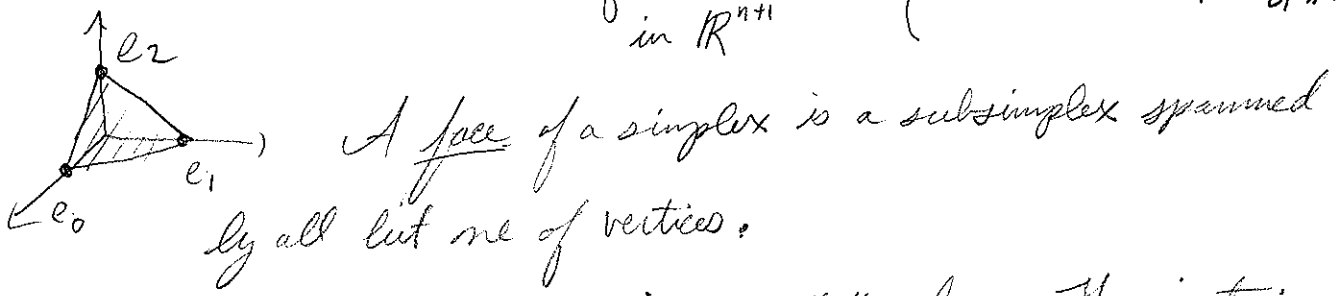 in ℝⁿ⁺¹ (
e₂
A face of a simplex is a subsimplex spanned
e₁
e₀
by all but one of vertices.